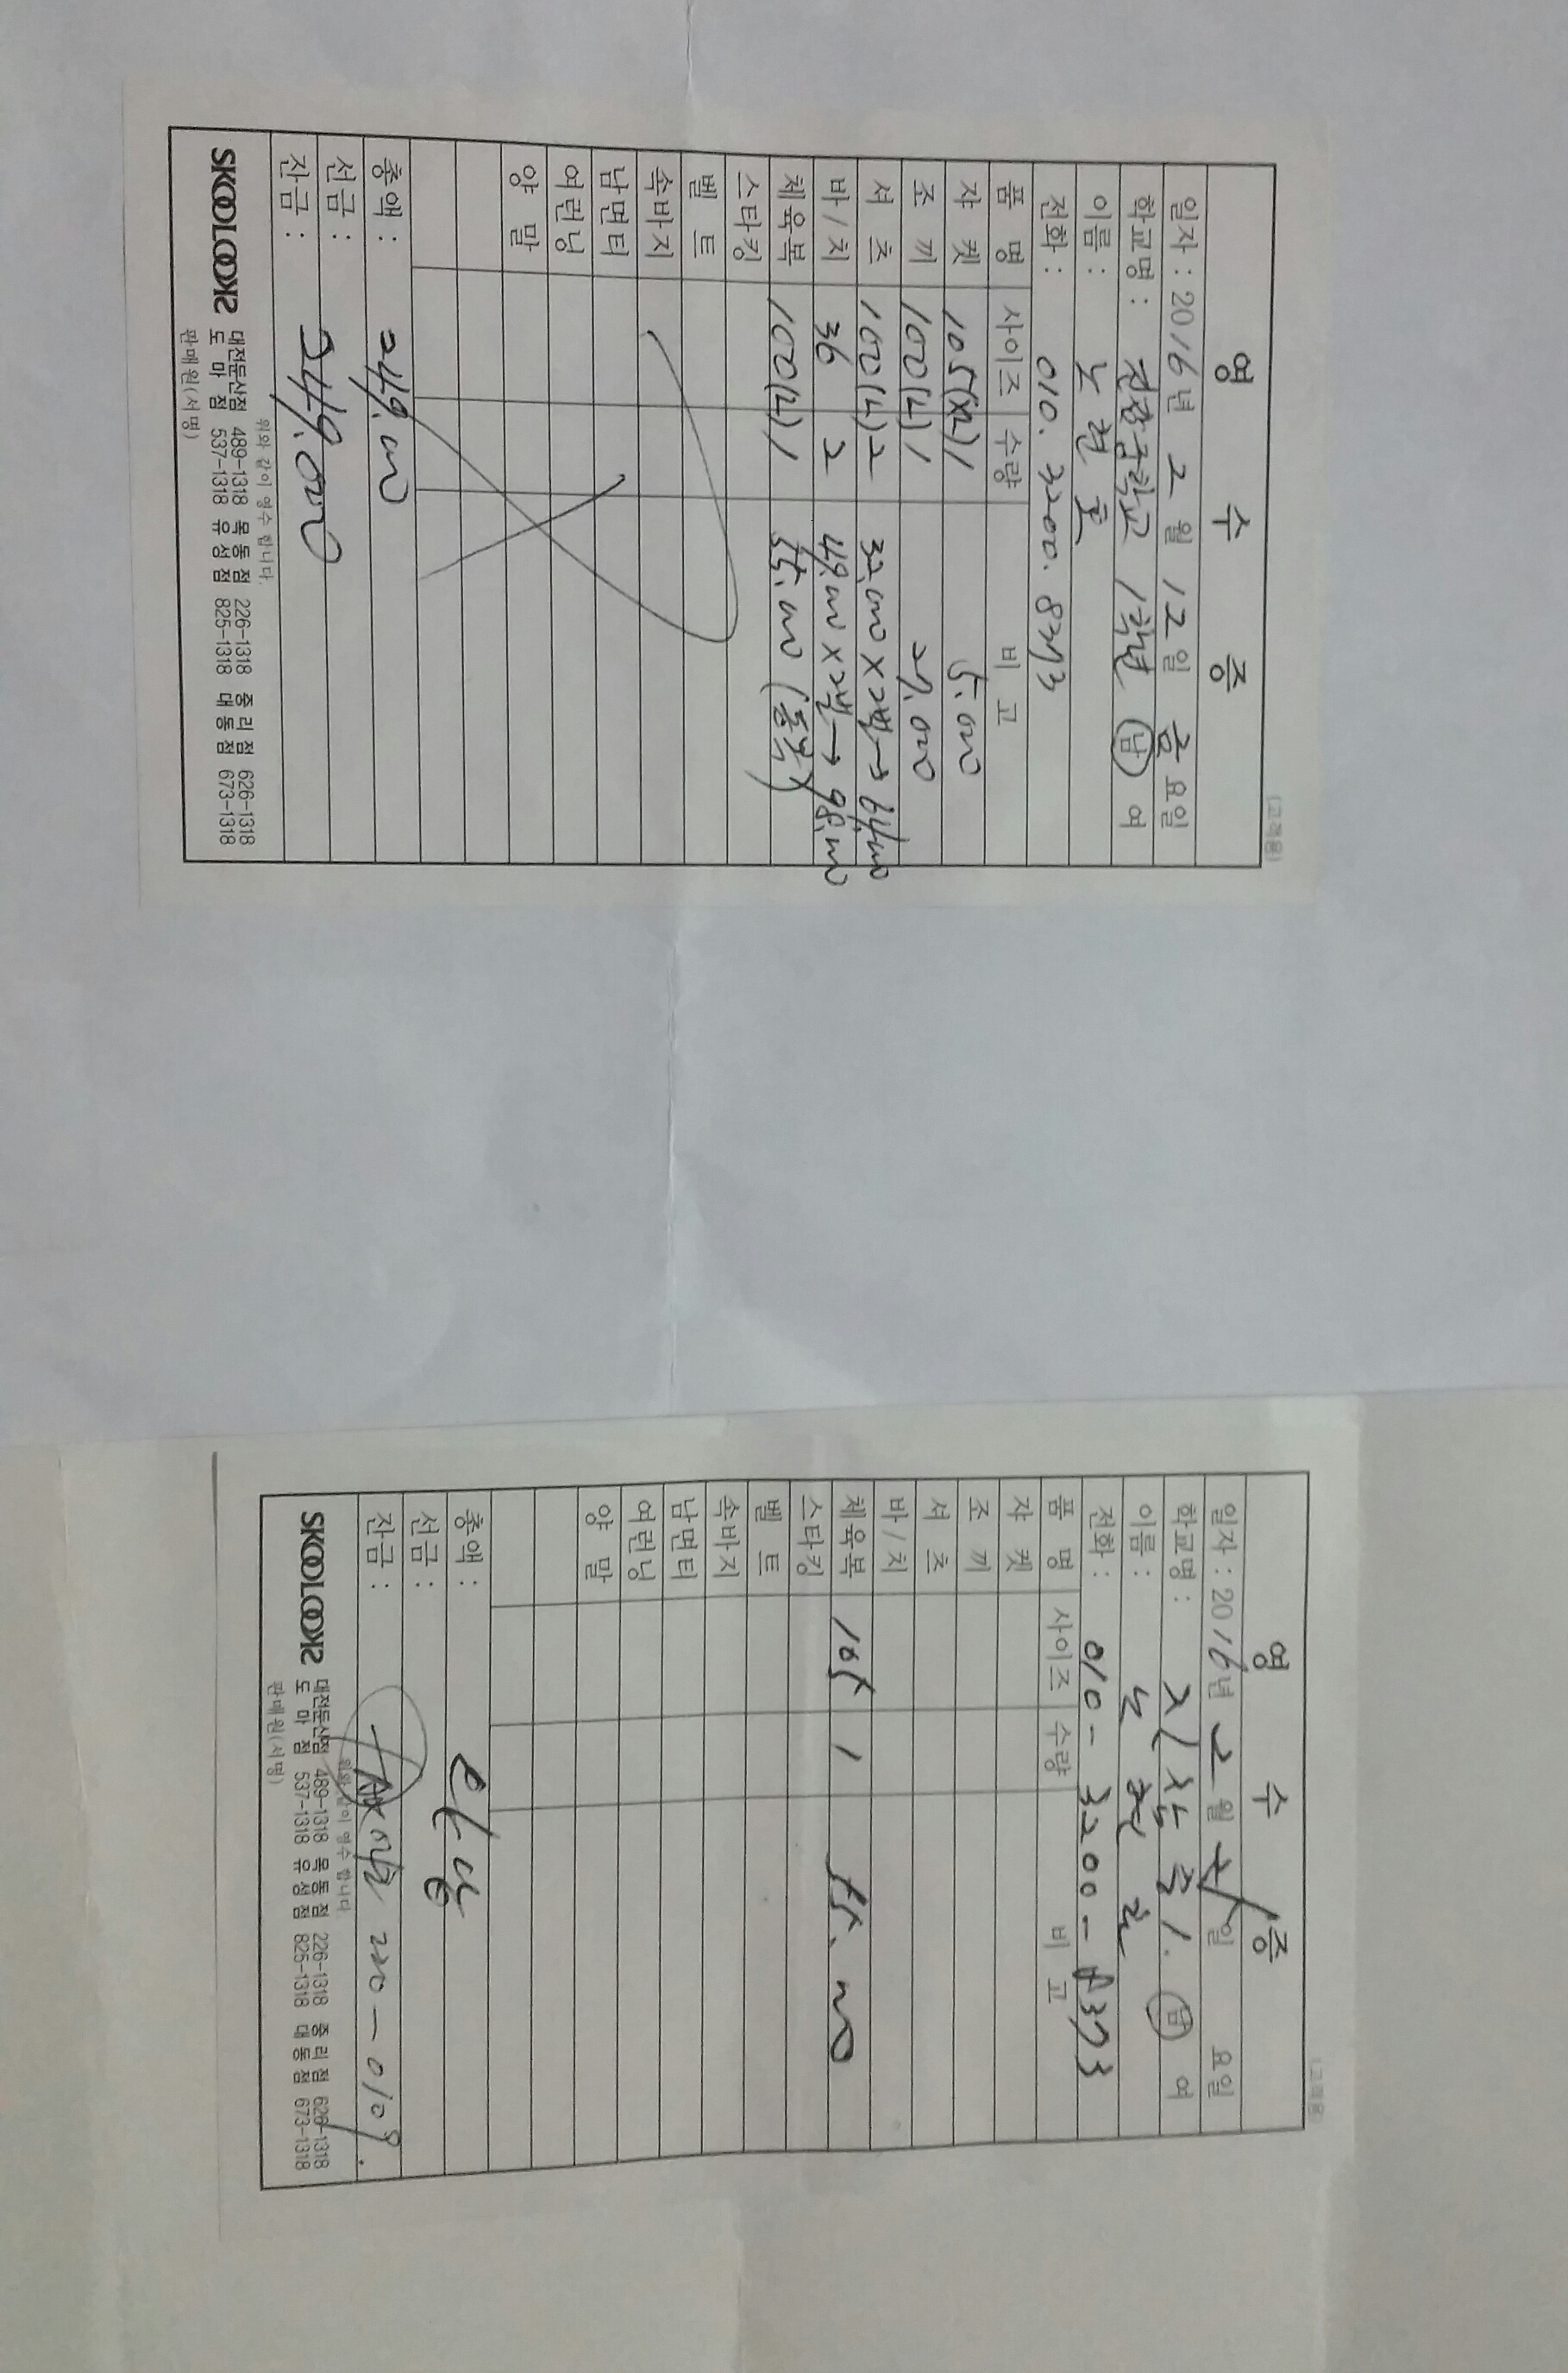 영 수 증
(고객용)
일자 : 2016년 2월 12일 금요일
학교명 : 중학교 1학년 남 여
이름 : 노
전화 : 010. 3200. 8373
품 명 사이즈 수량 비 고
자 켓 105(XL) 1 5.000
조 끼 100(L) 1 27.000
셔 츠 100(L) 2 32.000 X 2벌 → 64.000
바 / 치 36 2 49.000 X 2벌 → 98.000
체육복 100(L) 1 55.000
스타킹
벨 트
속바지
남면티
여런닝
양 말
총액 : 249.000
선금 :
잔금 : 249.000
위와 같이 영수 합니다.
SKOOLOOKS 대전둔산점 489-1318 목동점 226-1318 중리점 626-1318
도 마 점 537-1318 유성점 825-1318 대동점 673-1318
판매원(서명)
영 수 증
(고객용)
일자 : 2016년 2월 일 요일
학교명 : 중 1. 남 여
이름 : 노
전화 : 010 - 3200 - 8373
품 명 사이즈 수량 비 고
자 켓
조 끼
셔 츠
바 / 치
체육복 105 1 55.000
스타킹
벨 트
속바지
남면티
여런닝
양 말
총액 : 완납
선금 :
잔금 : 220-0109.
위와 같이 영수 합니다
SKOOLOOKS 대전둔산점 489-1318 목동점 226-1318 중리점 626-1318
도 마 점 537-1318 유성점 825-1318 대동점 673-1318
판매원(서명)